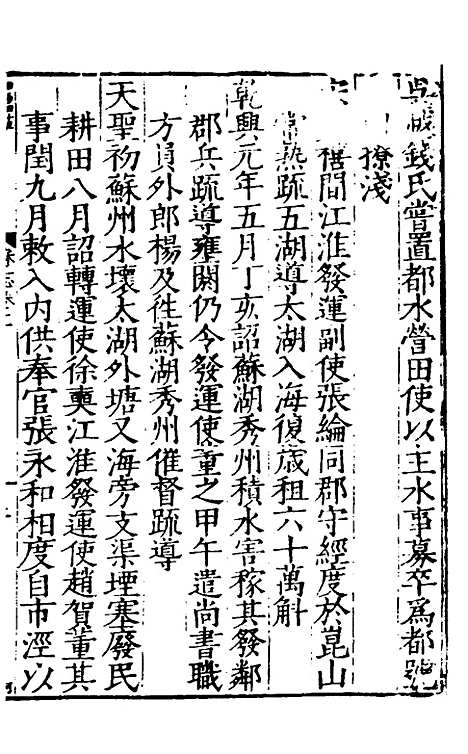 吳越錢氏嘗置都水營田使以主水事募卒爲都號
撩淺
宋 禧間江淮發運副使張綸同郡守經度於崑山
常熟疏五湖導太湖入海復歲租六十萬斛
乾興元年五月丁亥詔蘇湖秀州積水害稼其發鄰
郡兵疏導壅閼仍令發運使董之甲午遣尚書職
方員外郎楊及徃蘇湖秀州催督疏導
天聖初蘇州水壞太湖外塘又海旁支渠堙塞廢民
耕田八月詔轉運使徐奭江淮發運使趙賀董其
事閏九月敕入内供奉官張永和相度自市涇以